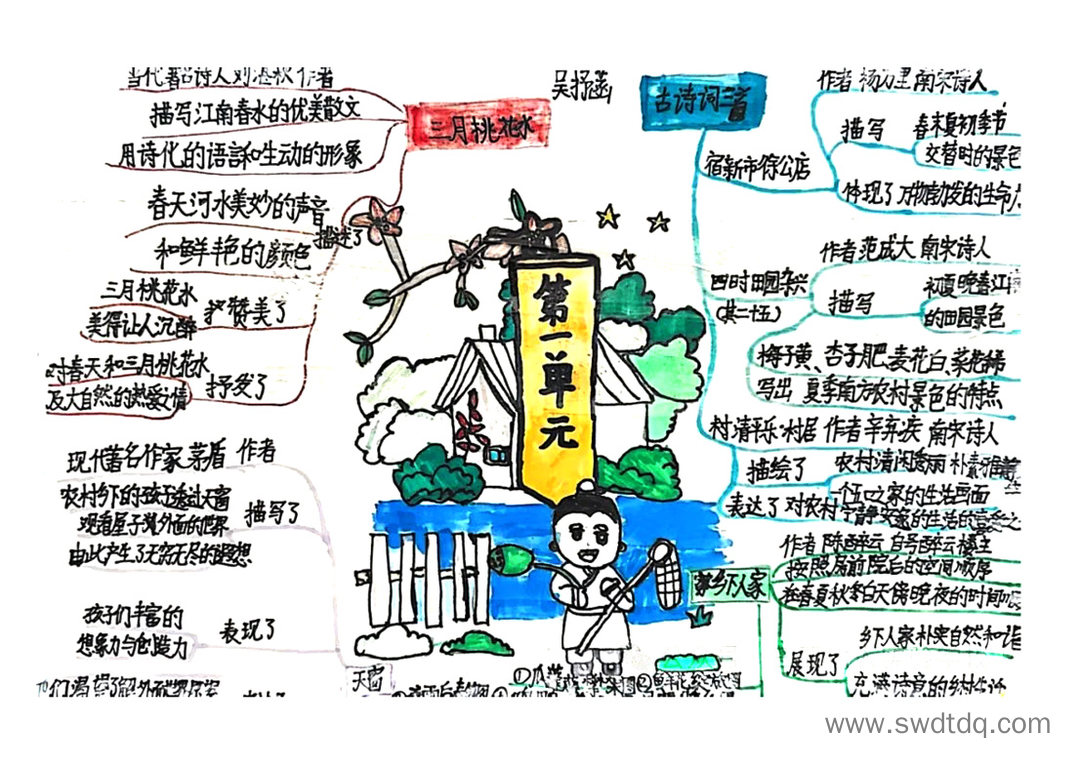 吴抒菡
第一单元
三月桃花水
当代著名诗人刘湛秋 作者
描写江南春水的优美散文
用诗化的语言和生动的形象
描述了
春天河水美妙的声音
和鲜艳的颜色
赞美了
三月桃花水
美得让人沉醉
抒发了
对春天和三月桃花水
及大自然的热爱之情
现代著名作家 茅盾 作者
农村乡下的孩子透过天窗
观看屋子以外面的世界
由此产生了无穷无尽的遐想
描写了
孩子们丰富的
想象力与创造力
表现了
天窗
古诗词三首
宿新市徐公店
作者 杨万里 南宋诗人
描写
春末夏初季节
交替时的景色
体现了 万物勃发的生命力
四时田园杂兴
(其二十五)
作者 范成大 南宋诗人
描写
初夏晚春江南
的田园景色
梅子黄、杏子肥、麦花白、菜花稀
写出 夏季南方农村景色的特点
村 清平乐·村居 作者 辛弃疾 南宋诗人
描绘了
农村清闲秀丽 朴素雅静
一个五口之家的生活画面
表达了 对农村宁静安家的生活的喜爱之
乡下人家
作者 陈醉云
按照房前院后的空间顺序
春夏秋 白天傍晚夜的时间
展现了
乡下人家朴实自然和谐
充满诗意的乡村生活
www.swdtdq.com